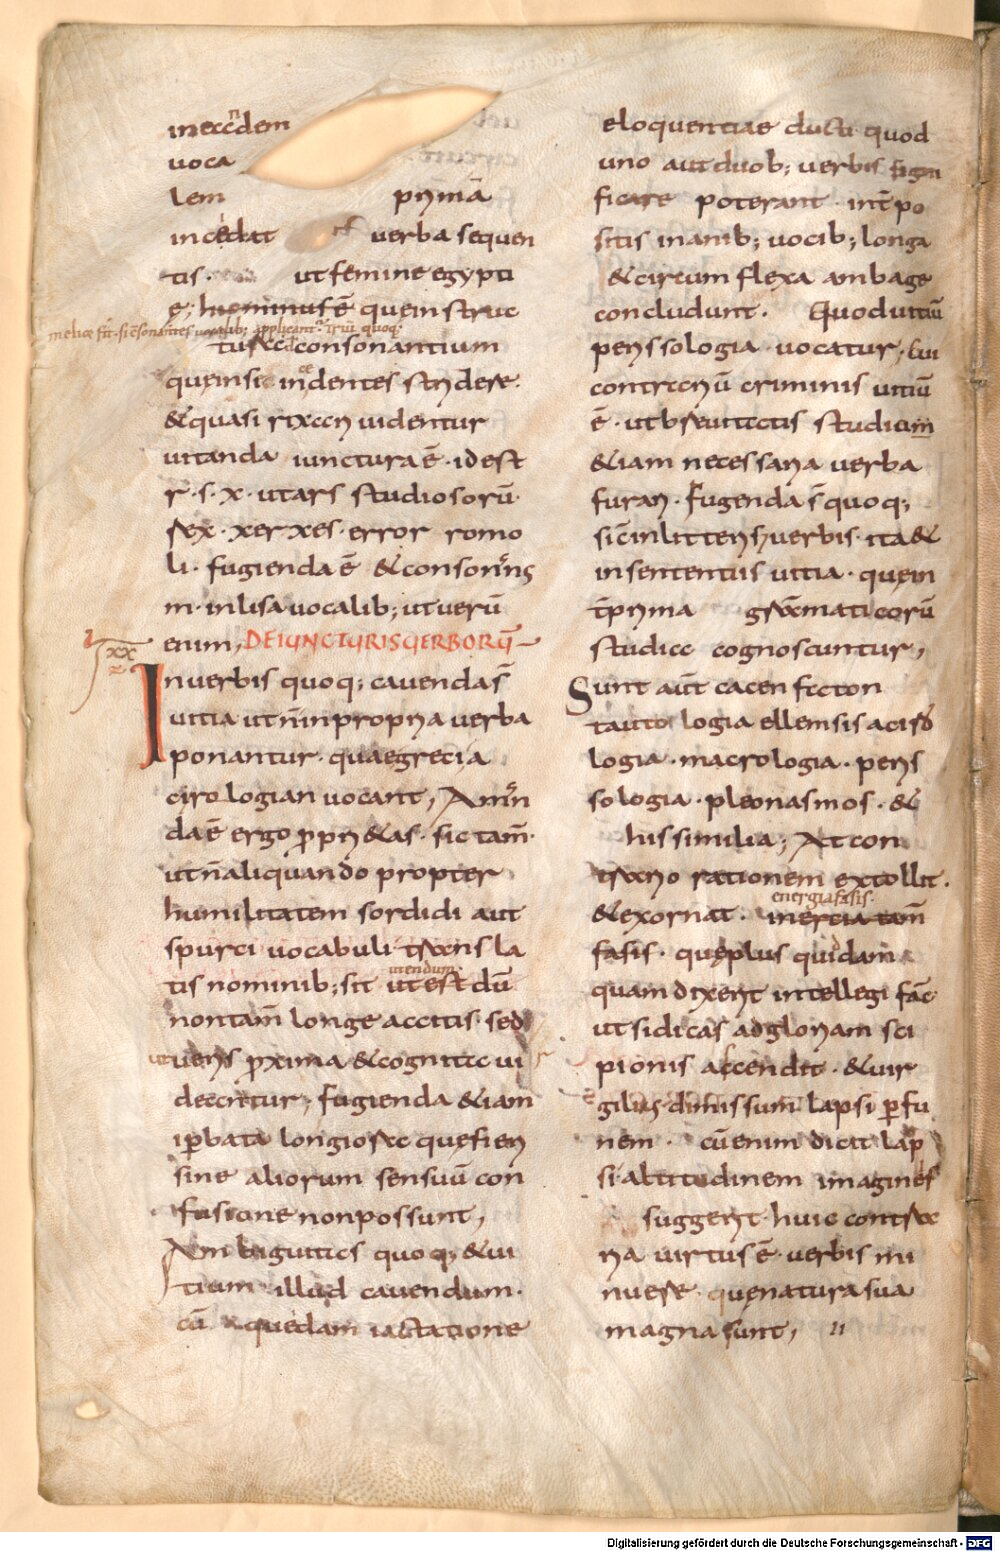 in eadem
voca
lem primā
incedat verba sequen
tis. ut femine egypti
e; hominusē quem struc
melior fit si consonantes vocalib; applicant
tura consonantium
quem si incidentes strident
& quasi rixari uidentur
uitanda iunctura ē. id est
r. s. x. ut ars studiosorū.
rex. xerxes. error romo
li. fugienda ē & consonans
m. inlisa uocalib; ut uerū
enim, DE IUNCTURIS UERBORŪ
XX
In uerbis quoq; cauenda s̄
uitia ut n̄ inpropria uerba
ponantur. quae grecia
cirologian uocant, Aman
da ē ergo ppri&as. sic tam̄.
ut n̄ aliquando propter
humilitatem sordidi aut
spurci uocabuli trans la
tis nominib; sit ut est dū
utendum
non tam̄ longe accitis. sed
ueris pxima & cognata ui
deantur, fugienda &iam
ipbata longiora que fieri
sine aliorum sensuū con
fusione non possunt,
Ambiguitas quoq; & ui
tium illud cauendum.
cū quedam iactatione
eloquentiae ducti quod
uno aut duob; uerbis signi
ficare poterant int̄po
sitis inanib; uocib; longa
& circumflexa ambage
concludunt. Quod uitiū
perissologia uocatur, cui
contrariū criminis uitiū
ē. ut breuitatis studium
&iam necessaria uerba
furari. fugenda s̄ quoq;
sic in litteris, uerbis. ita &
in sententiis uitia. quem
prima gramaticorū
studiae cognoscuntur,
Sunt aut̄ cacenfaton
tautologia ellemsis aciro
logia. macrologia. peris
sologia. pleonasmos. &
his similia, At con
trario rationem extollit.
energia fasis.
& exornat. inercia tam̄
fasis. que plus quidam
quam dixerit intellegi fac
ut si dicas ad gloriam sci
pionis accendit. & uir
gilius. dum issum lapsi p fu
nem. cū enim dicit lap
si altitudinem imagines
suggerit. huic contra
ria uirtus ē. uerbis mi
nuere. que natura sua
magna sunt,
Digitalisierung gefördert durch die Deutsche Forschungsgemeinschaft - DFG